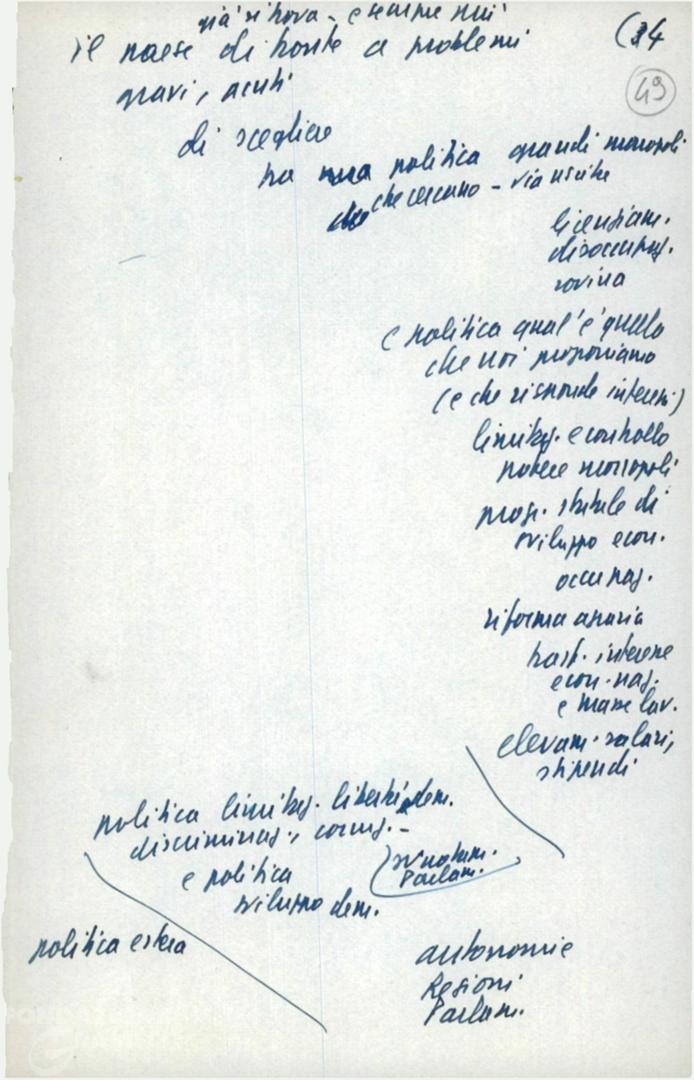 già si trova - e sempre più
(34
il paese di fronte a problemi
49
gravi, acuti
di scegliere
tra una politica grandi monopoli
che cercano - via uscita
licenziam.
disoccupaz.
rovina
e politica qual'è quella
che noi proponiamo
(e che risponde interessi)
limitaz. e controllo
potere monopoli
progr. statale di
sviluppo econ.
occupaz.
riforma agraria
trasf. interesse
econ. naz.
e masse lav.
elevam. salari,
stipendi
politica limitaz. libertà dem.
discriminaz., corruz. -
(svuotam.
Parlam.
e politica
sviluppo dem.
politica estera
autonomie
Regioni
Parlam.